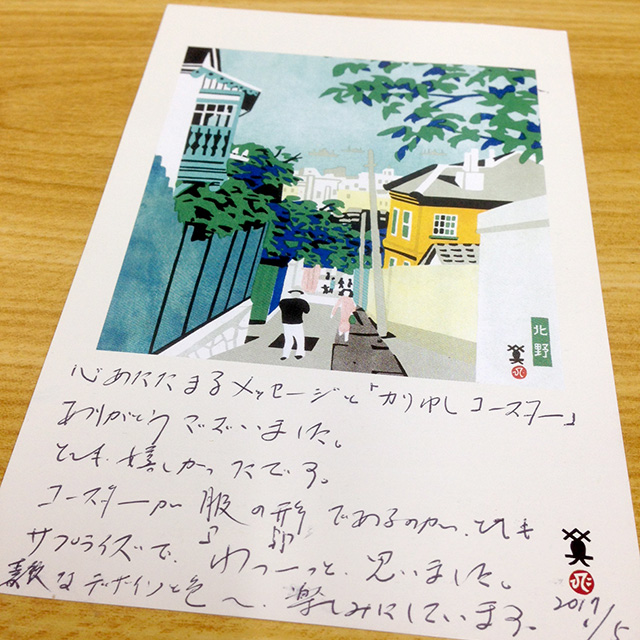 北野
心あたたまるメッセージと「かりゆしコースター」
ありがとうございました。
とても嬉しかったです。
コースターが服の形であるのが、とても
サプライズで、わっーっと、思いました。
素敵なデザインと色〜、楽しみにしています。
2017. 1/5